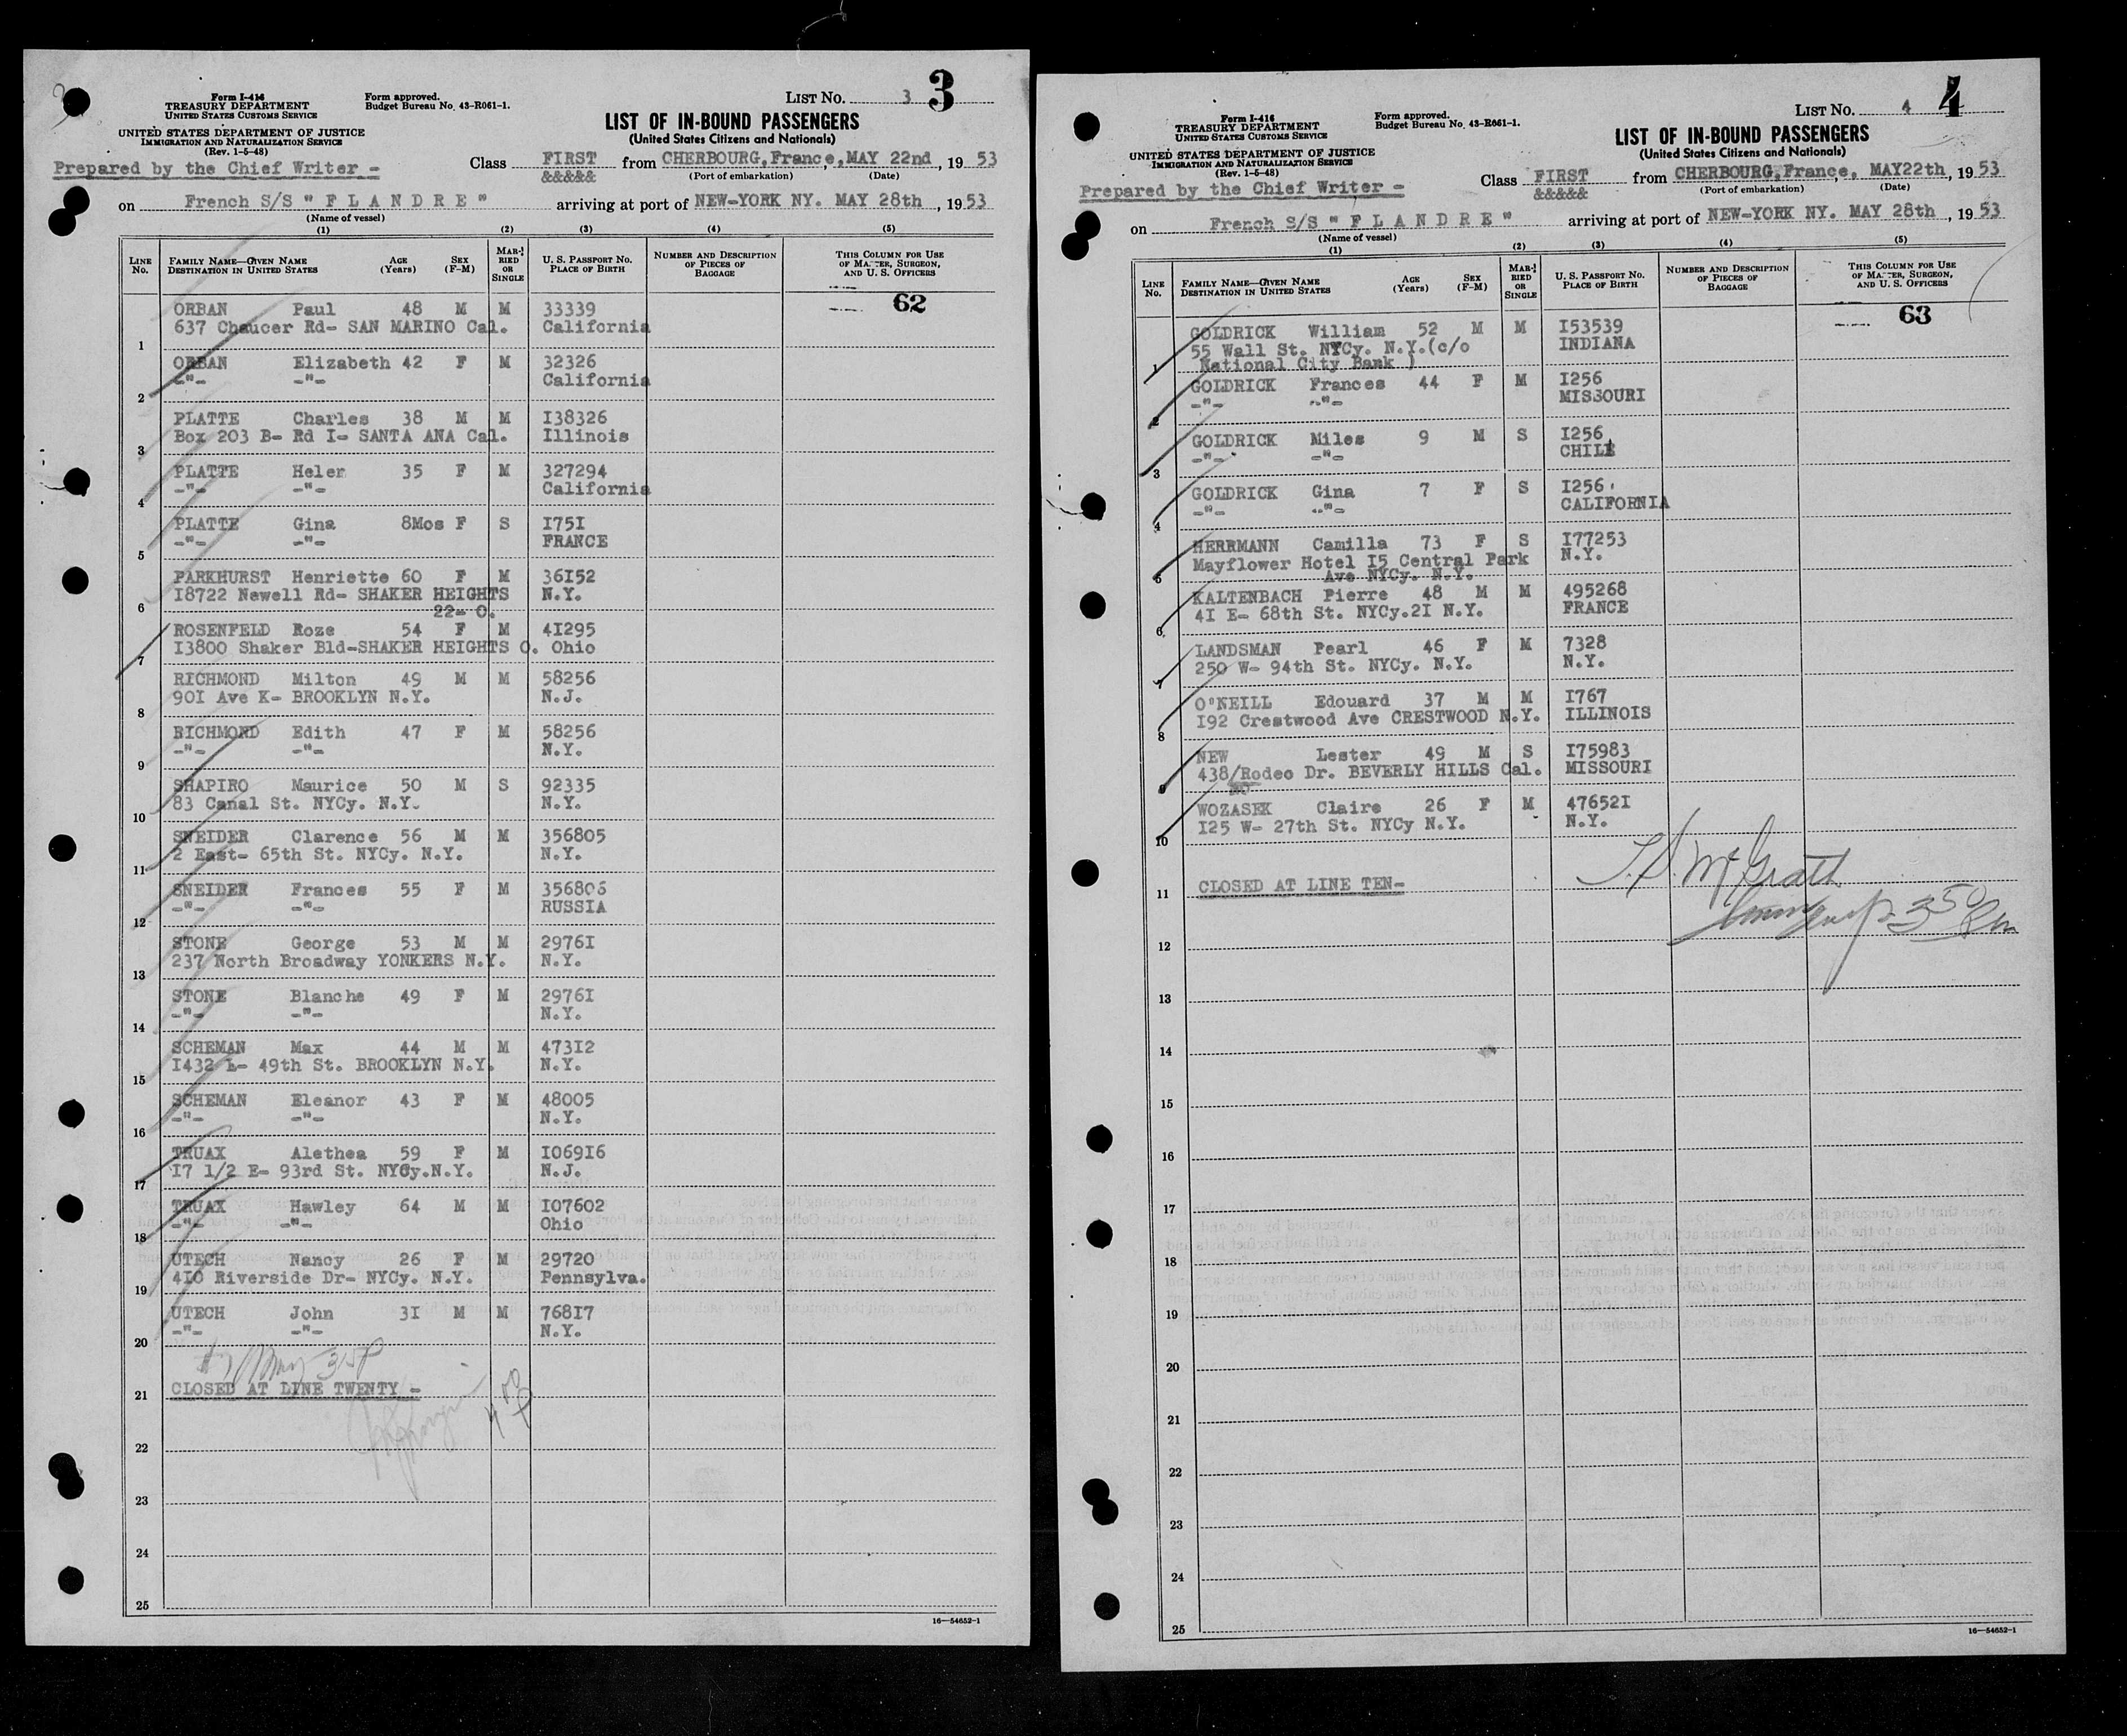 Form I-416
TREASURY DEPARTMENT
UNITED STATES CUSTOMS SERVICE
UNITED STATES DEPARTMENT OF JUSTICE
IMMIGRATION AND NATURALIZATION SERVICE
(Rev. 1-5-48)
Form approved.
Budget Bureau No. 43-R061-1.
LIST NO. 3 3
LIST OF IN-BOUND PASSENGERS
(United States Citizens and Nationals)
Prepared by the Chief Writer -
Class FIRST from CHERBOURG, France, MAY 22nd, 1953
&&&&& (Port of embarkation) (Date)
on French S/S " F L A N D R E " arriving at port of NEW-YORK NY. MAY 28th, 1953
(Name of vessel)
(1) (2) (3) (4) (5)
LINE No. FAMILY NAME—GIVEN NAME DESTINATION IN UNITED STATES AGE (Years) SEX (F-M) MARRIED OR SINGLE U. S. PASSPORT No. PLACE OF BIRTH NUMBER AND DESCRIPTION OF PIECES OF BAGGAGE THIS COLUMN FOR USE OF MASTER, SURGEON, AND U. S. OFFICERS
62
ORBAN Paul 48 M M 33339
1 637 Chaucer Rd- SAN MARINO Cal. California
ORBAN Elizabeth 42 F M 32326
2 -"- -"- California
PLATTE Charles 38 M M I38326
3 Box 203 B- Rd I- SANTA ANA Cal. Illinois
PLATTE Helen 35 F M 327294
4 -"- -"- California
PLATTE Gina 8Mos F S I75I
5 -"- -"- FRANCE
PARKHURST Henriette 60 F M 36I52
6 I8722 Newell Rd- SHAKER HEIGHTS N.Y.
22- O.
ROSENFELD Roze 54 F M 4I295
7 I3800 Shaker Bld-SHAKER HEIGHTS O. Ohio
RICHMOND Milton 49 M M 58256
8 90I Ave K- BROOKLYN N.Y. N.J.
RICHMOND Edith 47 F M 58256
9 -"- -"- N.Y.
SHAPIRO Maurice 50 M S 92335
10 83 Canal St. NYCy. N.Y. N.Y.
SNEIDER Clarence 56 M M 356805
11 2 East- 65th St. NYCy. N.Y. N.Y.
SNEIDER Frances 55 F M 356806
12 -"- -"- RUSSIA
STONE George 53 M M 2976I
13 237 North Broadway YONKERS N.Y. N.Y.
STONE Blanche 49 F M 2976I
14 -"- -"- N.Y.
SCHEMAN Max 44 M M 473I2
15 I432 E- 49th St. BROOKLYN N.Y. N.Y.
SCHEMAN Eleanor 43 F M 48005
16 -"- -"- N.Y.
TRUAX Alethea 59 F M I069I6
17 I7 1/2 E- 93rd St. NYCy.N.Y. N.J.
TRUAX Hawley 64 M M I07602
18 -"- -"- Ohio
UTECH Nancy 26 F M 29720
19 4I0 Riverside Dr- NYCy. N.Y. Pennsylva.
UTECH John 3I M M 768I7
20 -"- -"- N.Y.
21 CLOSED AT LINE TWENTY -
22
23
24
25
16—54652-1
Form I-416
TREASURY DEPARTMENT
UNITED STATES CUSTOMS SERVICE
UNITED STATES DEPARTMENT OF JUSTICE
IMMIGRATION AND NATURALIZATION SERVICE
(Rev. 1-5-48)
Form approved.
Budget Bureau No. 43-R061-1.
LIST NO. 4 4
LIST OF IN-BOUND PASSENGERS
(United States Citizens and Nationals)
Prepared by the Chief Writer -
Class FIRST from CHERBOURG, France, MAY22th, 1953
&&&&& (Port of embarkation) (Date)
on French S/S " F L A N D R E " arriving at port of NEW-YORK NY. MAY 28th, 1953
(Name of vessel)
(1) (2) (3) (4) (5)
LINE No. FAMILY NAME—GIVEN NAME DESTINATION IN UNITED STATES AGE (Years) SEX (F-M) MARRIED OR SINGLE U. S. PASSPORT No. PLACE OF BIRTH NUMBER AND DESCRIPTION OF PIECES OF BAGGAGE THIS COLUMN FOR USE OF MASTER, SURGEON, AND U. S. OFFICERS
63
GOLDRICK William 52 M M I53539
55 Wall St. NYCy. N.Y.(c/o INDIANA
1 National City Bank )
GOLDRICK Frances 44 F M I256
2 -"- -"- MISSOURI
GOLDRICK Miles 9 M S I256
3 -"- -"- CHILE
GOLDRICK Gina 7 F S I256
4 -"- -"- CALIFORNIA
HERRMANN Camilla 73 F S I77253
Mayflower Hotel I5 Central Park N.Y.
5 Ave NYCy. N.Y.
KALTENBACH Pierre 48 M M 495268
6 4I E- 68th St. NYCy.2I N.Y. FRANCE
LANDSMAN Pearl 46 F M 7328
7 250 W- 94th St. NYCy. N.Y. N.Y.
O'NEILL Edouard 37 M M I767
8 I92 Crestwood Ave CRESTWOOD N.Y. ILLINOIS
NEW Lester 49 M S I75983
9 438/Rodeo Dr. BEVERLY HILLS Cal. MISSOURI
WOZASEK Claire 26 F M 47652I
10 I25 W- 27th St. NYCy N.Y. N.Y.
11 CLOSED AT LINE TEN-
McGrath
3 50 Pm
12
13
14
15
16
17
18
19
20
21
22
23
24
25
16—54652-1